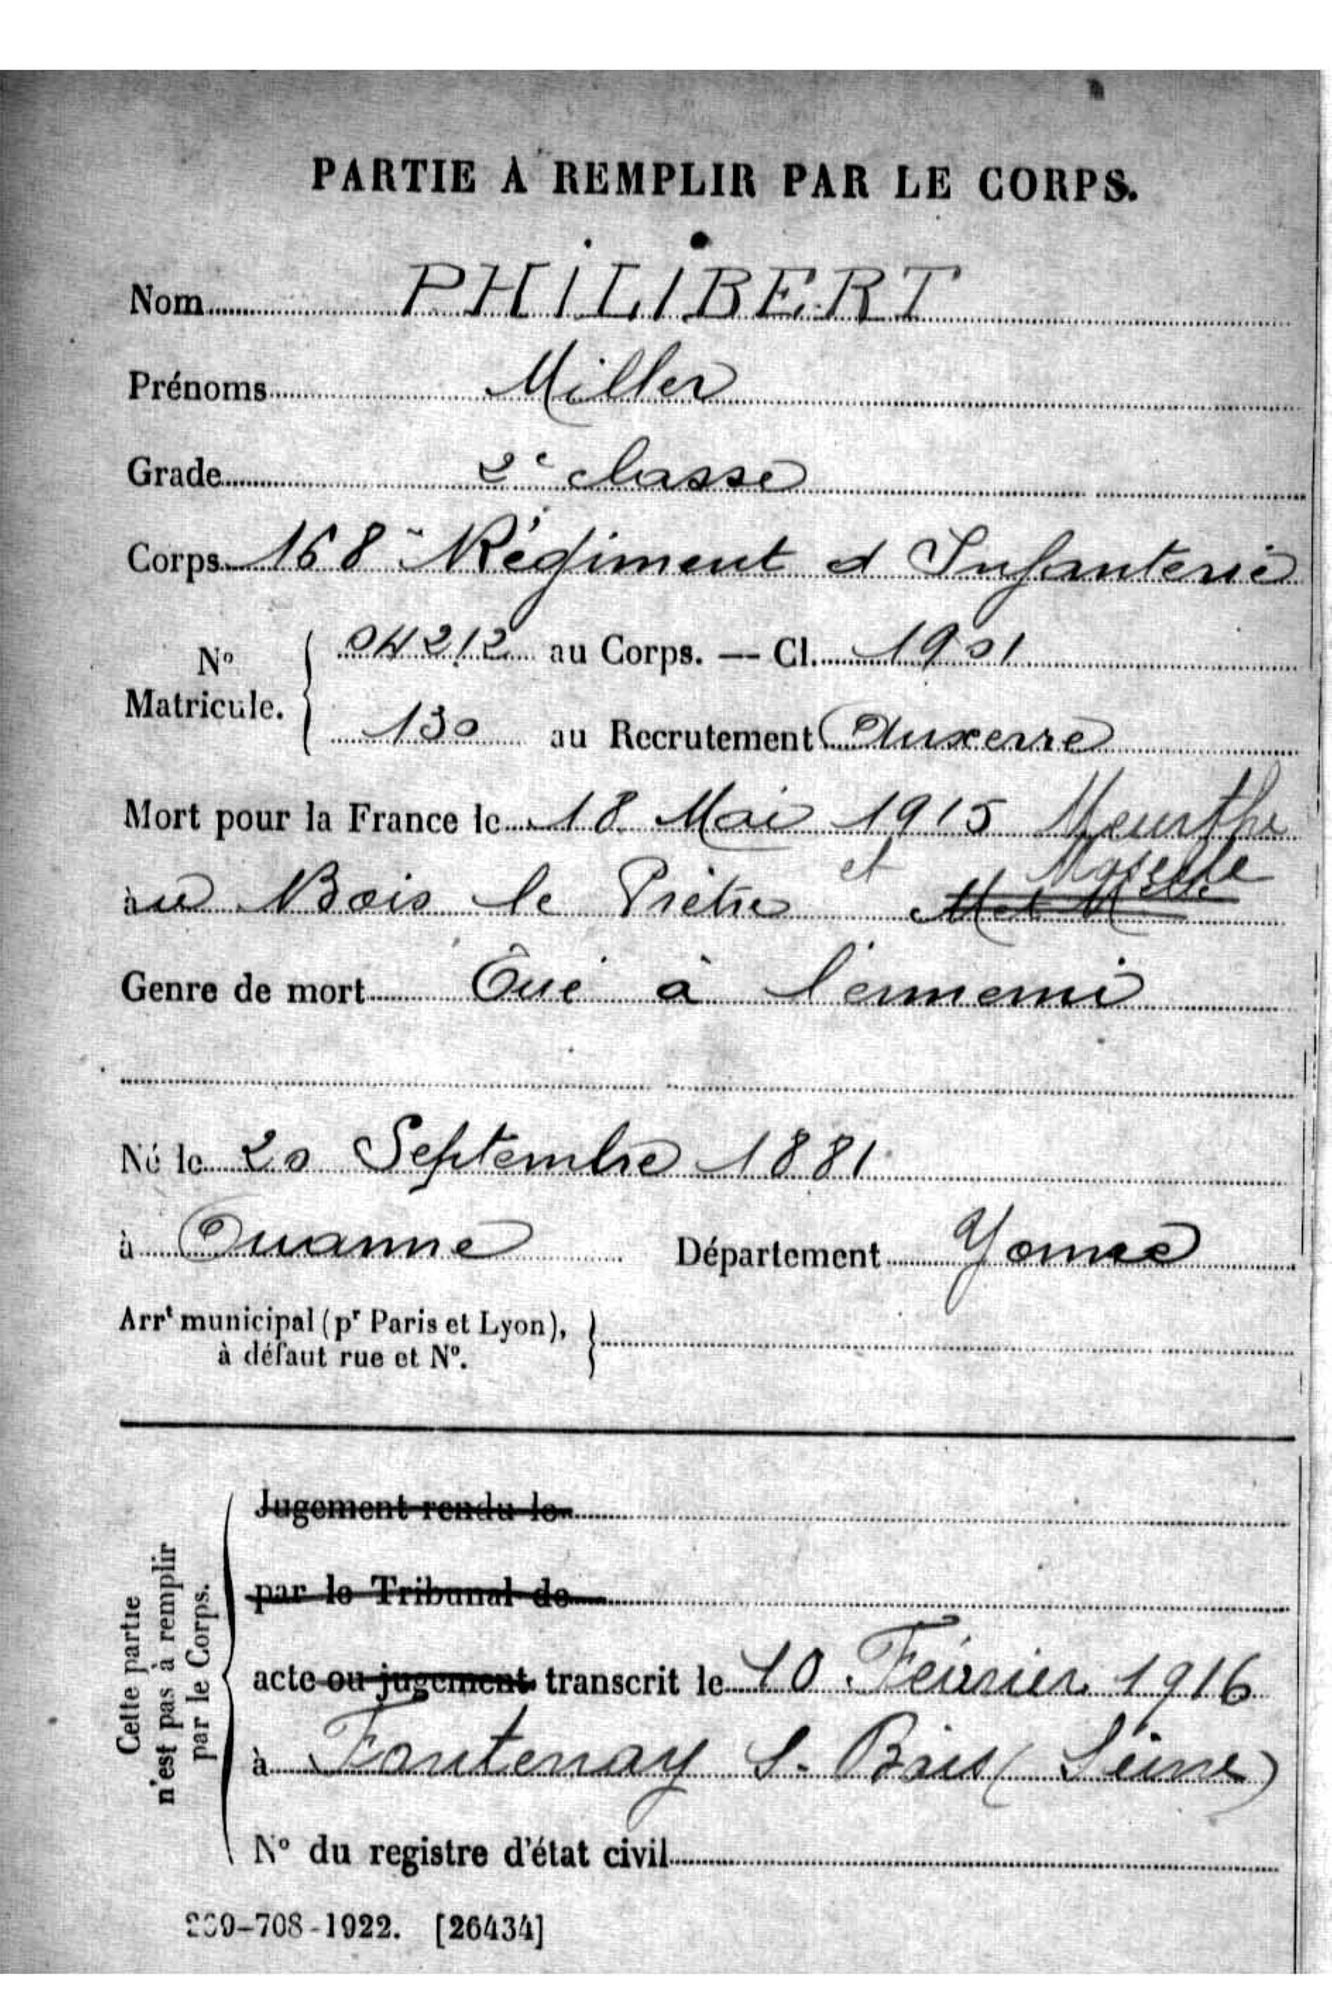 PARTIE À REMPLIR PAR LE CORPS.
Nom PHILIBERT
Prénoms Miller
Grade 2e classe
Corps 168e Régiment d Infanterie
No Matricule. 04212 au Corps. — Cl. 1901
130 au Recrutement Auxerre
Mort pour la France le 18 Mai 1915 Meurthe
au Bois le Prêtre et Moselle
Genre de mort Tué à l'ennemi
Né le 20 Septembre 1881
à Ouanne Département Yonne
Arrt municipal (pr Paris et Lyon),
à défaut rue et No.
Cette partie
n'est pas à remplir
par le Corps.
Jugement rendu le
par le Tribunal de
acte ou jugement transcrit le 10 Février 1916
à Fontenay s. Bois (Seine)
No du registre d'état civil
-708-1922. [26434]